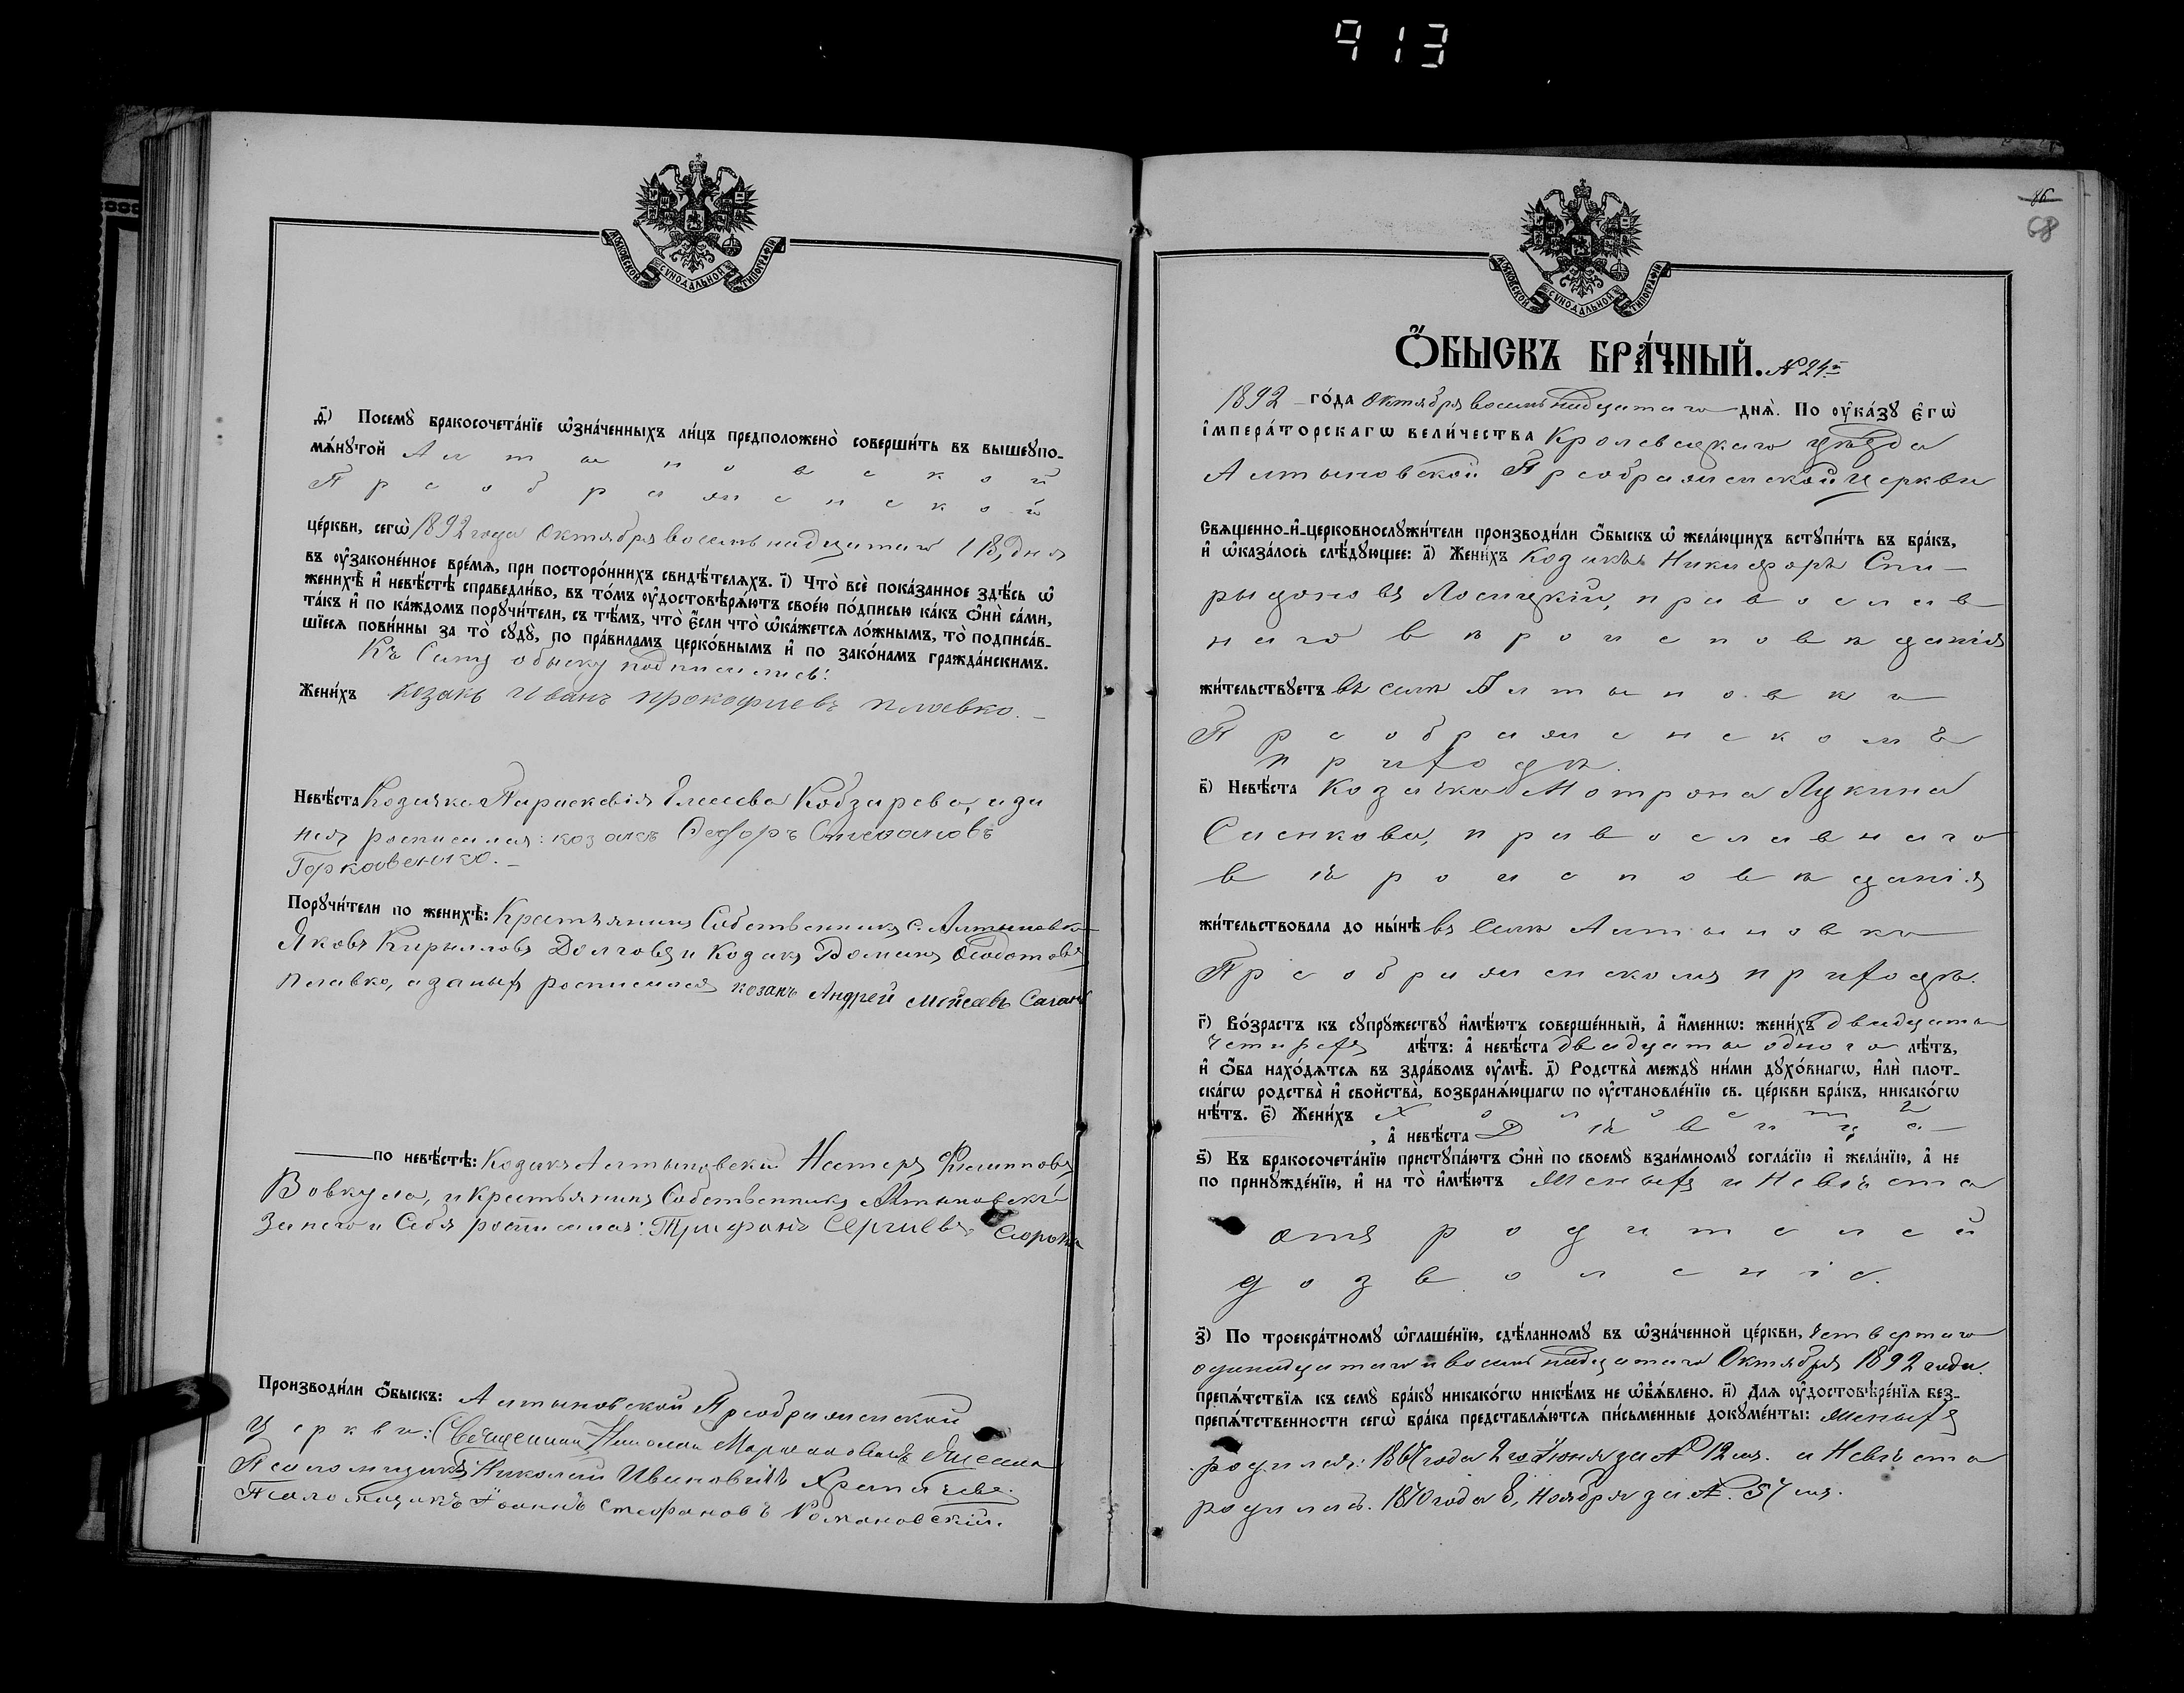 913
МОСКОВСКОЙ СѴНОДАЛЬНОЙ ТИПОГРАФІИ
д҃і) Посемꙋ̀ бракосочета́нїе ѡ҆зна́ченныхъ ли́цъ предположено̀ соверши́ть въ вышеꙋпо-
мѧ́нꙋтой Алтыновской
Преображенской
це́ркви, сегѡ̀ 1892 года Октября восемьнадцатаго 18, дня
въ ᲂу҆законе́нное вре́мѧ, при посторо́ннихъ свидѣ́телѧхъ. і҃) Что̀ всѐ пока́занное здѣ́сь ѡ҆
женихѣ̀ и҆ невѣ́стѣ справедли́во, въ то́мъ ᲂу҆достовѣрѧ́ютъ свое́ю по́дписью ка́къ ѻ҆нѝ са́ми,
та́къ и҆ по ка́ждомъ порꙋчи́тели, съ тѣ́мъ, что̀ є҆́сли что̀ ѡ҆ка́жетсѧ ло́жнымъ, то̀ подписа́в-
шїесѧ пови́нны за то̀ сꙋдꙋ̀, по пра́виламъ церко́внымъ и҆ по зако́намъ гражда́нскимъ.
Къ Сему обыску подписались:
Жени́хъ козакъ Иванъ прокофиевъ плавко.
Невѣ́ста Козачка Параскевія Елисѣева Кобзарева, а за
нея росписался: козакъ Федоръ Стефановъ
Горковенко.
Порꙋчи́тели по женихѣ̀: Крестьянинъ Собственникъ с. Алтыновки
Яковъ Кирылловъ Долговъ и Козакъ Романъ Федотовъ
плавко, а за ныхъ росписался козакъ Андрей Мойсеевъ Саган
по невѣ́стѣ: Козакъ Алтыновский Нестеръ Филипповъ
Вовкула, и Крестьянинъ Собственникъ Алтыновский
За него и Себя росписался: Трифонъ Сергиевъ Сорока
Производи́ли ѻ҆́быскъ: Алтыновской Преображенской
Церкви: Священник Николай
Псаломщикъ Николай Ивановичъ
Псаломщикъ Іоаннъ Стефановъ Романовский.
86
68
МОСКОВСКОЙ СѴНОДАЛЬНОЙ ТИПОГРАФІИ
Ѻ҆́БЫСКЪ БРА́ЧНЫЙ. № 24й
1892 го́да Октября восемьнадцатаго днѧ̀. По ᲂу҆ка́зꙋ є҆гѡ̀
і҆мпера́торскагѡ вели́чества Кролевецкаго уѣзда
Алтыновской Преображенской церкви
Свѧще́нно-и҆-церковнослꙋжи́тели производи́ли ѻ҆́быскъ ѡ҆ жела́ющихъ встꙋпи́ть въ бра́къ,
и҆ ѡ҆каза́лось слѣ́дꙋющее: а҃) Жени́хъ Козакъ Никифоръ Спи-
рыдоновъ Лосицкій, православ
наго вѣроисповѣданія
жи́тельствꙋетъ въ селѣ Алтыновки
Преображенскомъ
приходѣ.
в҃) Невѣ́ста Козачка Мотрона Лукина
Саенкова, православнаго
вѣроисповѣданія
жи́тельствовала до ны́нѣ въ Селѣ Алтыновки
Преображенскомъ приходѣ.
г҃) Во́зрастъ къ сꙋпрꙋ́жествꙋ и҆мѣ́ютъ соверше́нный, а҆ и҆́меннѡ: жени́хъ двадцаты
четырехъ лѣ́тъ: а҆ невѣ́ста двадцаты одного лѣ́тъ,
и҆ ѻ҆́ба нахо́дѧтсѧ въ здра́вомъ ᲂу҆мѣ̀. д҃) Родства̀ междꙋ̀ ни́ми дꙋхо́внагѡ, и҆лѝ пло́т-
скагѡ родства̀ и҆ сво́йства, возбранѧ́ющагѡ по ᲂу҆становле́нїю св. це́ркви бра́къ, никако́гѡ
нѣ́тъ. є҃) Жени́хъ Холостъ
, а҆ невѣ́ста Дѣвица
ѕ҃) Къ бракосочета́нїю пристꙋпа́ютъ ѻ҆нѝ по своемꙋ̀ взаи́мномꙋ согла́сїю и҆ жела́нїю, а҆ не
по принꙋжде́нїю, и҆ на то̀ и҆мѣ́ютъ Женыхъ и Невѣста
отъ родителей
дозволеніе.
з҃) По троекра́тномꙋ ѡ҆глаше́нїю, сдѣ́ланномꙋ въ ѡ҆зна́ченной це́ркви, четвертаго
одинадцатаго и восемьнадцатаго Октября 1892 года.
препѧ́тствїѧ къ семꙋ̀ бра́кꙋ никако́гѡ никѣ́мъ не ѡ҆б̾ѧ́влено. и҃) Длѧ ᲂу҆достовѣре́нїѧ без-
препѧ́тственности сегѡ̀ бра́ка представлѧ́ютсѧ пи́сьменные докꙋме́нты: Женыхъ
родился: 1867 года 2го Іюня за № 12мъ. а Невѣста
родилась. 1870 года 8, Ноября за №. 57мъ.